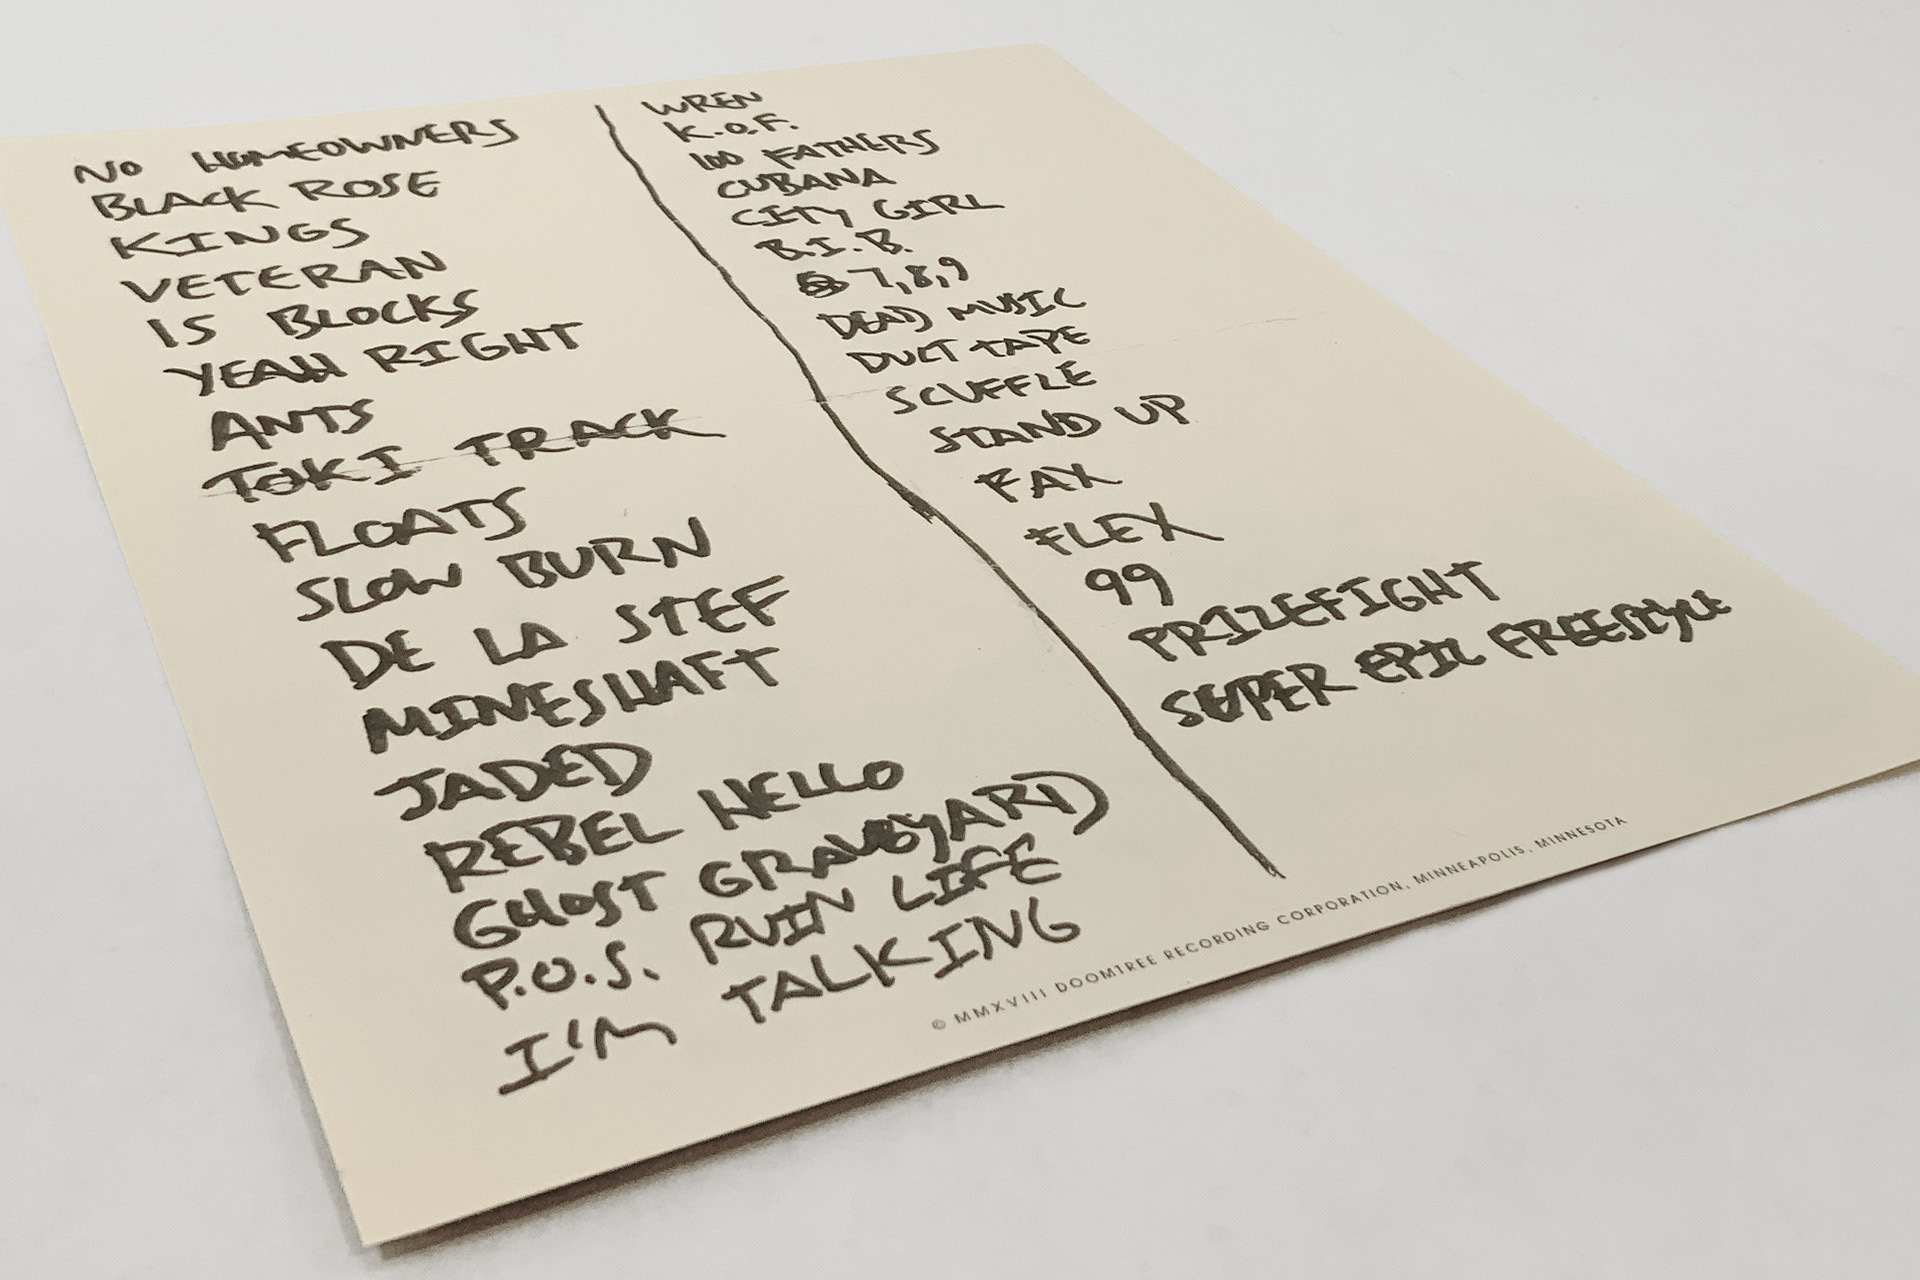 NO HOMEOWNERS
BLACK ROSE
KINGS
VETERAN
IS BLOCKS
YEAH RIGHT
ANTS
TOKI TRACK
FLOATS
SLOW BURN
DE LA STEF
MINESHAFT
JADED
REBEL HELLO
GHOST GRAVEYARD
P.O.S. RUIN LIFE
I'M TALKING
WREN
K.O.F.
100 FATHERS
CUBANA
CITY GIRL
B.I.B.
7,8,9
DEAD MUSIC
DUCT TAPE
SCUFFLE
STAND UP
FAX
FLEX
99
PRIZEFIGHT
SUPER EPIC FREESTYLE
© MMXVIII DOOMTREE RECORDING CORPORATION, MINNEAPOLIS, MINNESOTA